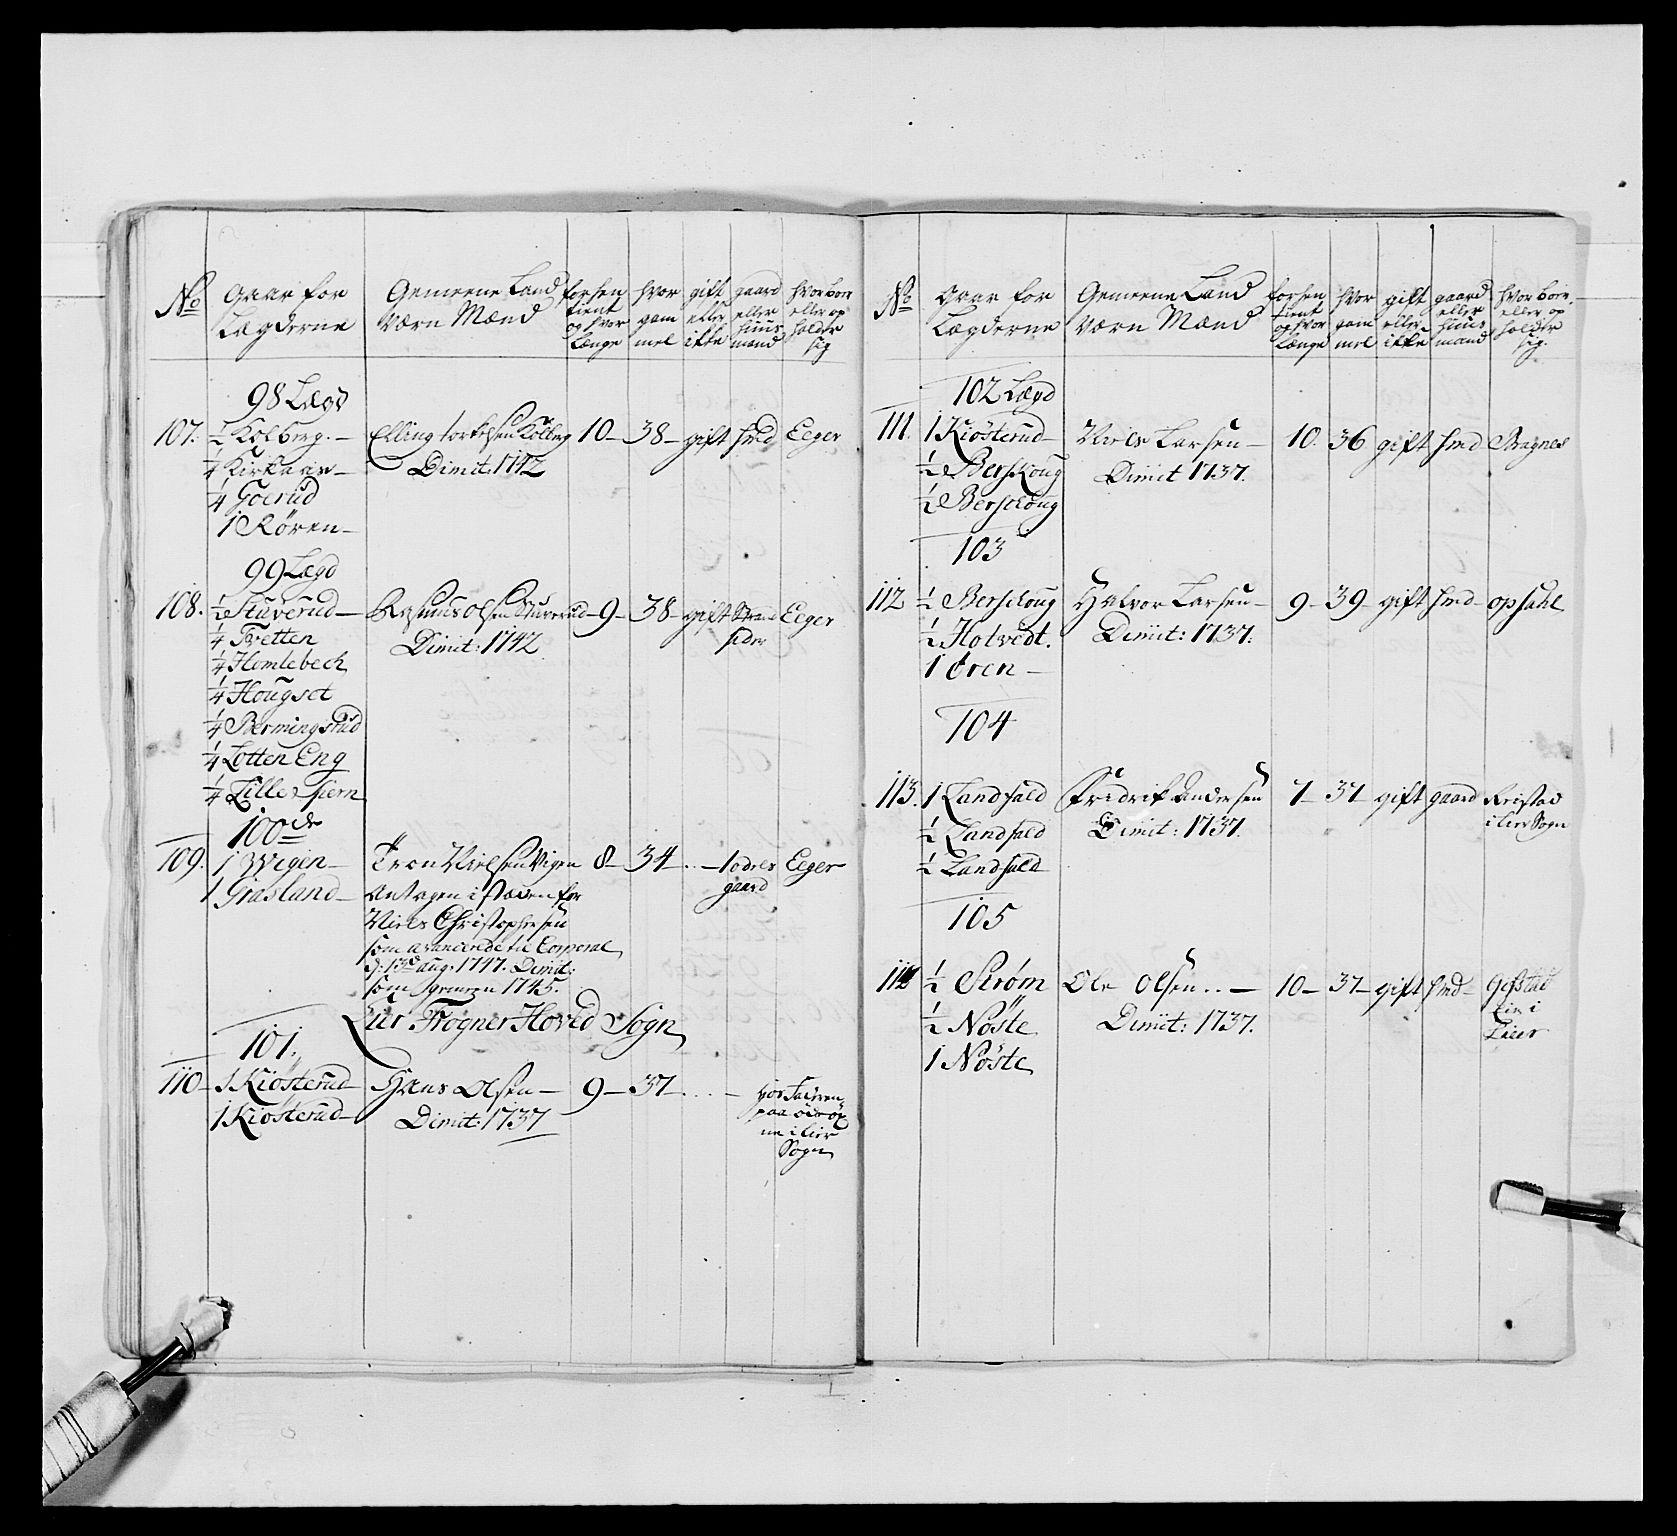 No Gaar for Lægderne Gemeene Land Værn Mænd forhen tient og hvor Længe hvor gam mel gift eller ikke gaard eller huus mand hvor boer eller op holder sig
98 Lægd
107. ½ Kolberg. – Elling torkelsen Kolberg 10 – 38 – gift hmd Eeger
¼ – Dimit: 1742
¼ Goerud
1 Røren –
99 Lægd
108. ½ Stuverud – Rasmus Olsen Stuverud – 9 – 38 – gift Strand sider Eeger
¼ Tvetten Dimit: 1742
¼ Hemlebech
¼ Hougset
¼ Bermingsrud
¼ Lotten Eng
¼ Lilles
100de
109. 1 Wegen – Tron Nielsen Vigen 8 – 34 . – gaard Eeger
1 Græsland – Antagen i stæden for
Niels Christophersen
som avancerede til Corporal
d: 13d aug: 1747. Dimit:
som 1745.
Lier Frogner Hoved Sogn
101.
110 – 1 Kiøsterud Hans Olsen – 9 – 37 . . . – hos Faderen
1 Kiøsterud – Dimit: 1737 paa
i Lier
Sogn
No Gaar for Lægderne Gemeene Land Værn Mænd forhen tient og hvor Længe hvor gam mel gift eller ikke gaard eller huus mand hvor boer eller op holder sig.
102 Lægd
111. 1 Kiøsterud – Niels Larsen – 10. 36 gift hmd Bragnes
½ Berskoug Dimit 1737.
½ Berschoug
103
112 ½ Berschoug Halvor Larsen – 9 – 39 – gift hmd – opsahl
½ Holvedt. Dimit: 1737.
1 Øren –
104
113. 1 Landfald Fridrik Andersen 7 – 37 – gift gaard Reistad
½ Landfald Dimit: 1737. i Lier Sogn
½ Landfald
105
114 ½ Strøm Ole Olsen . . – 10 – 37 – gift hmd – Gifstad
½ Nøste Dimit: 1737. Eie i
1 Nøste Lier